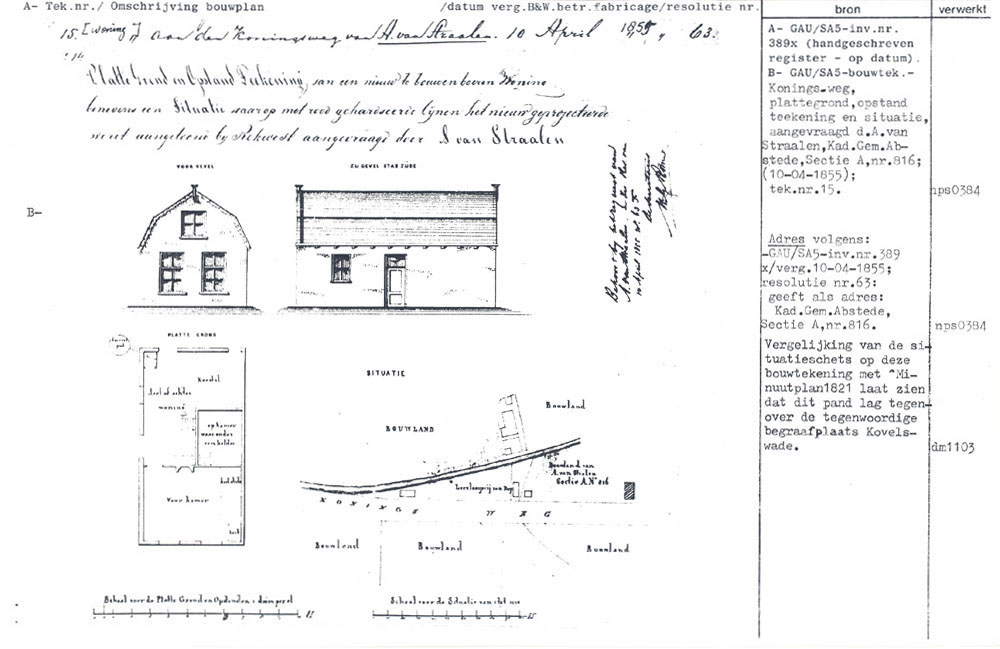 A- Tek.nr./ Omschrijving bouwplan /datum verg.B&W.betr.fabricage/resolutie nr. bron verwerkt
15. [woning] aan den Koningsweg van A. van Straalen. 10 April 1855, 63.
Platte Grond en Opstand Teekening, van een nieuw te bouwen boven Woning
benevens een Situatie waarop met rood gehardseerde lijnen het nieuw geprojecteerde
wordt aangetoond by Rekwest aangevraagd door A van Straalen
VOOR GEVEL
ZIJ GEVEL STAD ZIJDE
B-
PLATTE GROND
Keestal
deel of achter
woning
op kamer
waar onder
een kelder
bedstede
Voor kamer
SITUATIE
Bouwland
BOUWLAND
Bouwland van
A. van Stralen
Sectie A. No 816
KONINGS WEG
Bouwland
Bouwland
Bouwland
Schaal voor de Platte Grond en Opstanden
Schaal voor de Situatie van
A- GAU/SA5-inv.nr.
389x (handgeschreven
register - op datum).
B- GAU/SA5-bouwtek.-
Konings-weg,
plattegrond,opstand
teekening en situatie,
aangevraagd d.A.van
Straalen,Kad.Gem.Ab-
stede,Sectie A,nr.816;
(10-04-1855);
tek.nr.15.
nps0384
Adres volgens:
-GAU/SA5-inv.nr.389
x/verg.10-04-1855;
resolutie nr.63:
geeft als adres:
Kad.Gem.Abstede,
Sectie A,nr.816.
nps0384
Vergelijking van de si-
tuatieschets op deze
bouwtekening met "Mi-
nuutplan1821 laat zien
dat dit pand lag tegen-
over de tegenwoordige
begraafplaats Kovels-
wade.
dm1103